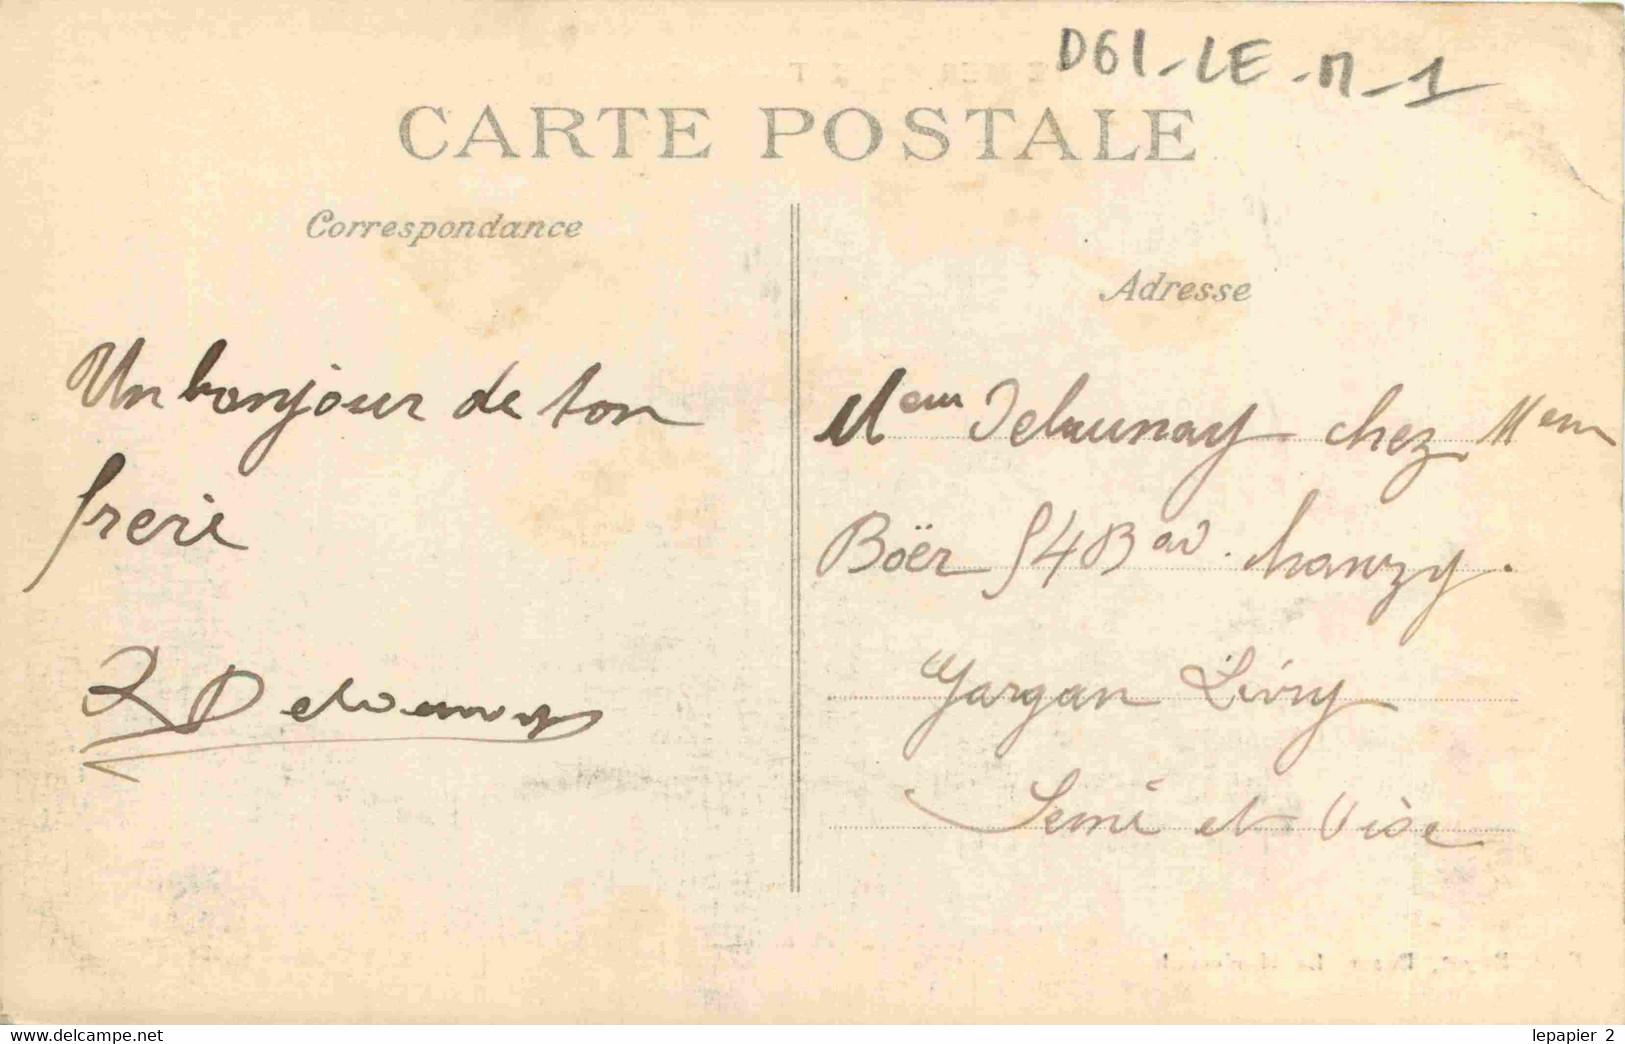 D61-LE-M-1
CARTE POSTALE
Correspondance
Adresse
Un bonjour de ton
frere
Delaunay
Mem Delaunay chez Mem
Böer 54 B chanzy.
Gargan Livry
Seine et Oise
www.delcampe.net
lepapier 2